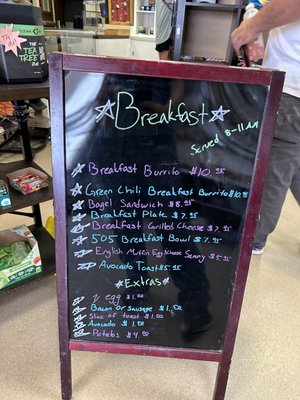 THE
TEA TREE
Breakfast
Served 8-11 AM
Breakfast Burrito $10.95
Green Chili Breakfast Burrito $10.95
Bagel Sandwich $8.95
Breakfast Plate $7.95
Breakfast Grilled Cheese $7.95
505 Breakfast Bowl $7.95
English Muffin Egg Cheese $5.95
Avocado Toast $5.95
Extras
egg $1.00
Bacon or Sausage
Slice of toast
Avocado
Potatos